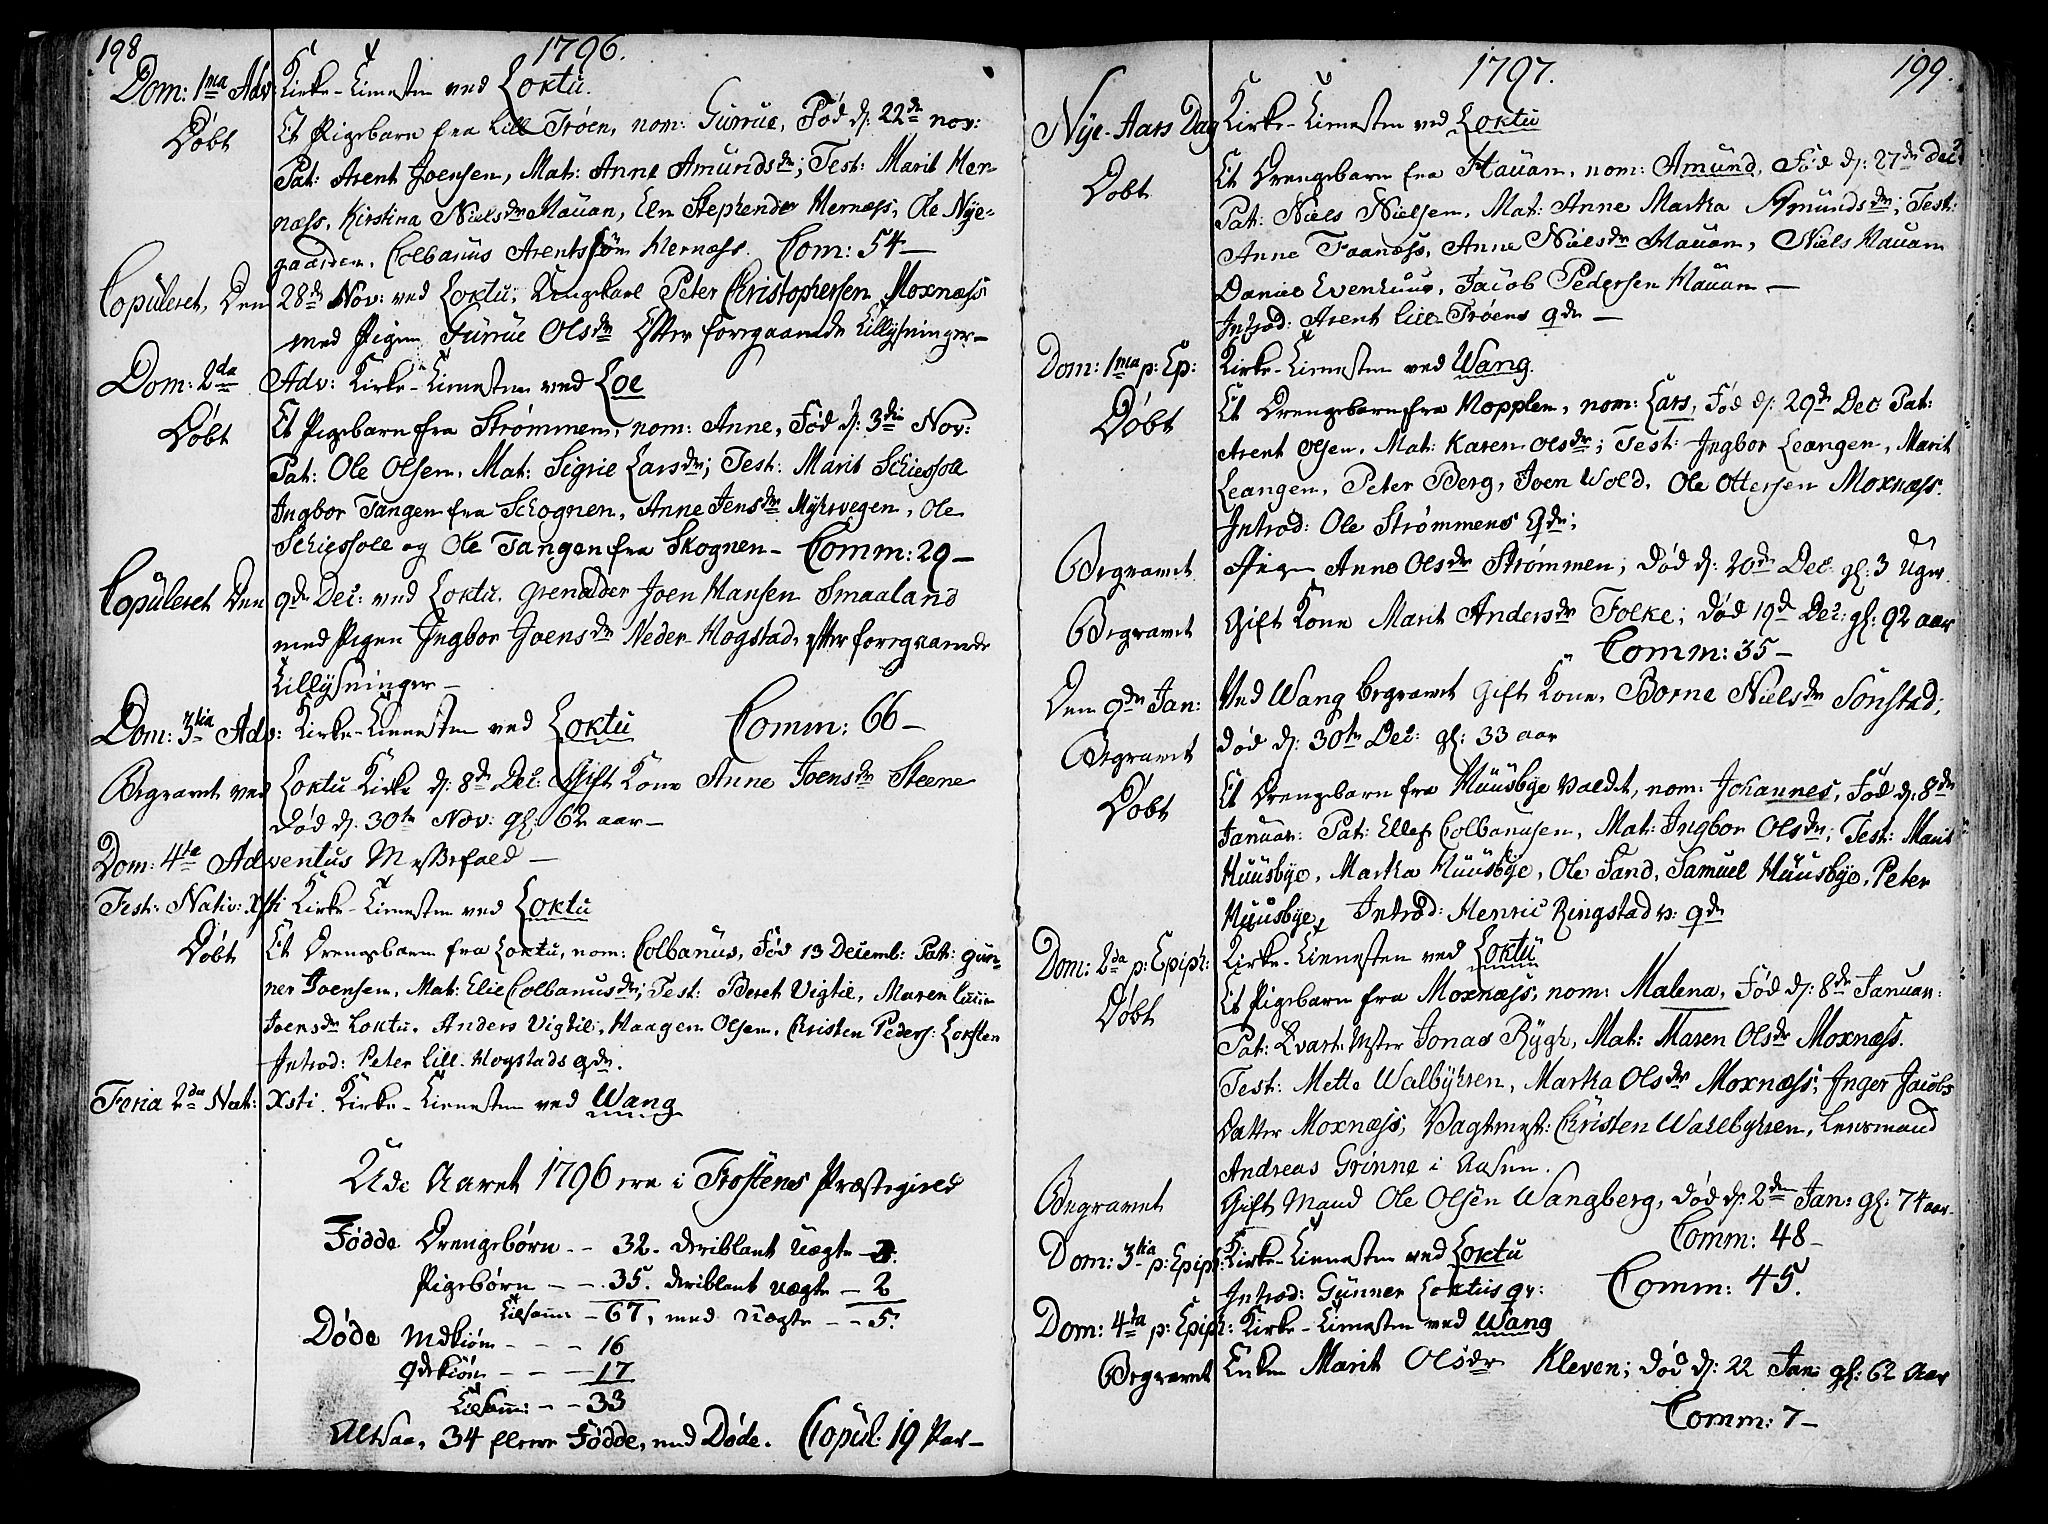 198
1796.
Dom: 1ma Adv: Kirke-Tienesten ved Loktu.
Døbt Et Pigebarn fra Lill Trøen, nom: Gurrue, Fød d: 22de nov:
Pat: Arent Joensen, Mat: Anne Amundsdr; Test: Marit Her-
næss, Kirstina Nielsdr Hauan, Eln Stephensdr Hernæss, Ole Nye-
gaarden, Colbanus Arentssøn Hernæss. Com: 54-
Copuleret, Den 28de Nov: ved Loktu, Ungekarl Peter Christophersen Moxnæss
med Pigen Gurrue Olsdr Efter foregaaende Tillysninger-
Dom: 2da Adv: Kirke-Tienesten ved Loe
Døbt Et Pigebarn fra Strømmen, nom: Anne, Fød d: 3die Nov:
Pat: Ole Olsen, Mat: Sigrie Larsdr; Test: Marit Schiesfole
Ingbor Tangen fra Schognen, Anne Jensdr Myhrvegen, Ole
Schiesfole og Ole Tangen fra Skognen- Comm: 29-
Copuleret Den 9de Dec: ved Loktu, Grenader Joen Hansen Smaaland
med Pigen Ingbor Joensdr Neder-Hogstad, efter foregaaende
Tillysninger-
Dom: 3tia Adv: Kirke-Tienesten ved Loktu Comm: 66-
Begravet ved Loktu Kirke d: 8de Dec: Gift Kone Anne Joensdr Steene
død d: 30te Nov: gl: 62 aar-
Dom: 4ta Adventus Messefald-
Fest: Nativ: Xsti Kirke-Tienesten ved Loktu
Døbt Et Drengebarn fra Loktu, nom: Colbanus, Fød 13 Decemb: Pat: Gun-
ner Joensen, Mat: Elie Colbanusdr; Test: Beret Vigtil, Maren
Joensdr Loktu, Anders Vigtil, Haagen Olsen, Christen Peders: Loksten
Introd: Peter Lill. Hogstads qde.
Feria 2da Nat: Xsti. Kirke-Tienesten ved Wang
Udi Aaret 1796 ere i Frostens Præstegield
Fødde Drengebørn - - 32. deriblant uægte - 3.
Pigebørn - - 35. deriblant uægte - 2
Tilsam: - 67, med uægte - - 5.
Døde Mdkiøn - - - 16
Qdekiøn - - - 17
Tilsam: - - 33
Altsaa, 34 flere Fødde, end Døde. Copul: 19 Par-
1797.
199.
Nye-Aars Dag Kirke-Tienesten ved Loktu
Døbt Et Drengebarn fra Hauan, nom: Amund, Fød d: 27de Dec:
Pat: Niels Nielsen, Mat: Anne Marka Amundsdr; Test:
Anne Faanæss, Anne Nielsdr Hauan, Niels Hauan
Daniel Evenhuus, Jacob Pedersen Hauan-
Introd: Arent Lill-Trøens qde-
Dom: 1ma p: Ep: Kirke-Tienesten ved Wang.
Døbt Et Drengebarn fra Hopplen, nom: Lars, Fød d: 29de Dec Pat:
Arent Olsen, Mat: Karen Olsdr; Test: Ingbor Leangen, Marit
Leangen, Peter Berg, Joen Wold, Ole Ottersen Moxnæss.
Introd: Ole Strømmens Qde;
Begravet Pigen Anne Olsdr Strømmen; død d: 20de Dec: gl: 3 Uger
Begravet Gift Kone Marit Andersdr Folke; død 19de Dec: gl: 92 aar
Comm: 35-
Den 9de Jan: Ved Wang begravet Gift Kone, Borne Nielsdr Sonstad;
Begravet død d: 30te Dec: gl: 33 aar
Døbt Et Drengebarn fra Huusbye valdet, nom: Johannes, Fød d: 8de
Januar: Pat: Ellef Colbanusen, Mat: Ingbor Olsdr; Test: Marit
Huusbye, Marka Huusbye, Ole Sand, Samuel Huusbye, Peter
Huusbye, Introd: Henric Ringstads: qde
Dom: 2da p: Epiph: Kirke-Tienesten ved Loktu
Døbt Et Pigebarn fra Moxnæss, nom: Malena, Fød d: 8de Januar:
Pat: Qvart: Mster Jonas Rygh, Mat: Maren Olsdr Moxnæss.
Test: Mette Walbyhren, Marka Olsdr Moxnæss, Inger Jacobs
Datter Moxnæss, Vagtmest: Christen Wallbyhren, Lensmand
Andreas Grønne i Aasen.
Begravet Gift Mand Ole Olsen Wangberg, død d: 2den Jan: gl: 74 aar
Comm: 48-
Dom: 3tia p: Epiph: Kirke-Tienesten ved Loktu
Introd: Gunner Loktus qv: Comm: 45.
Dom: 4ta p: Epiph: Kirke-Tienesten ved Wang
Begravet Enken Marit Olsdr Kleven; død d: 22 Jan: gl: 62 Aar
Comm: 7-